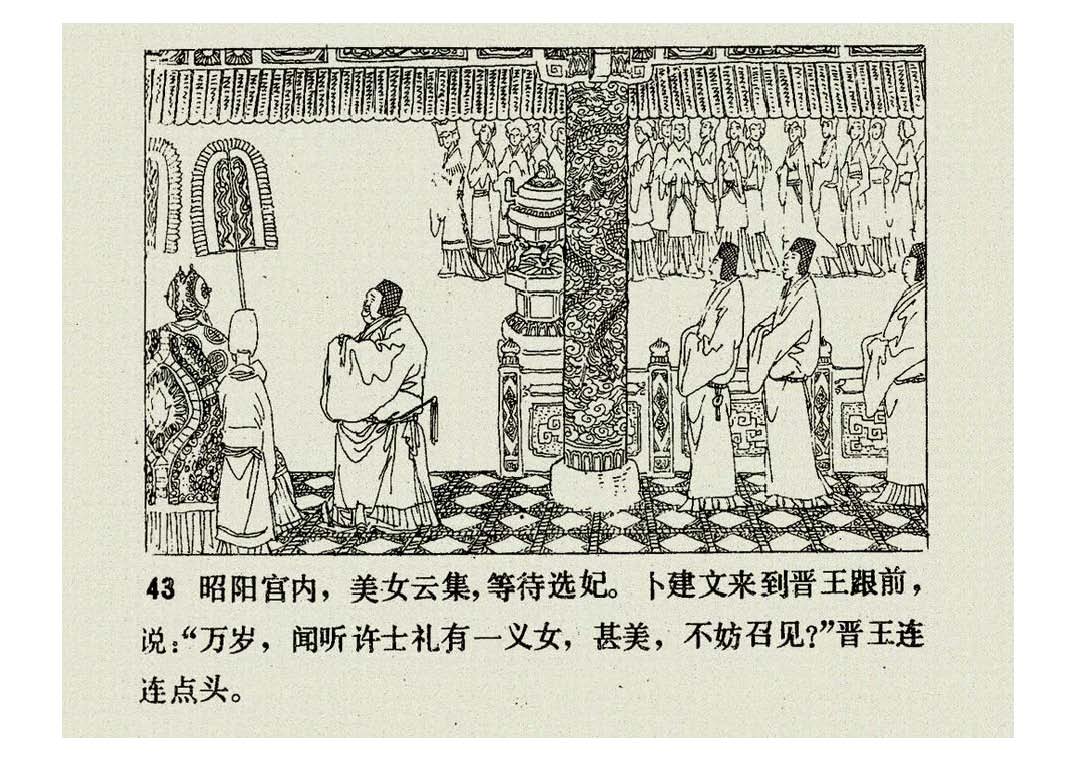 43 昭阳宫内，美女云集，等待选妃。卜建文来到晋王跟前，
说：“万岁，闻听许士礼有一义女，甚美，不妨召见？”晋王连
连点头。